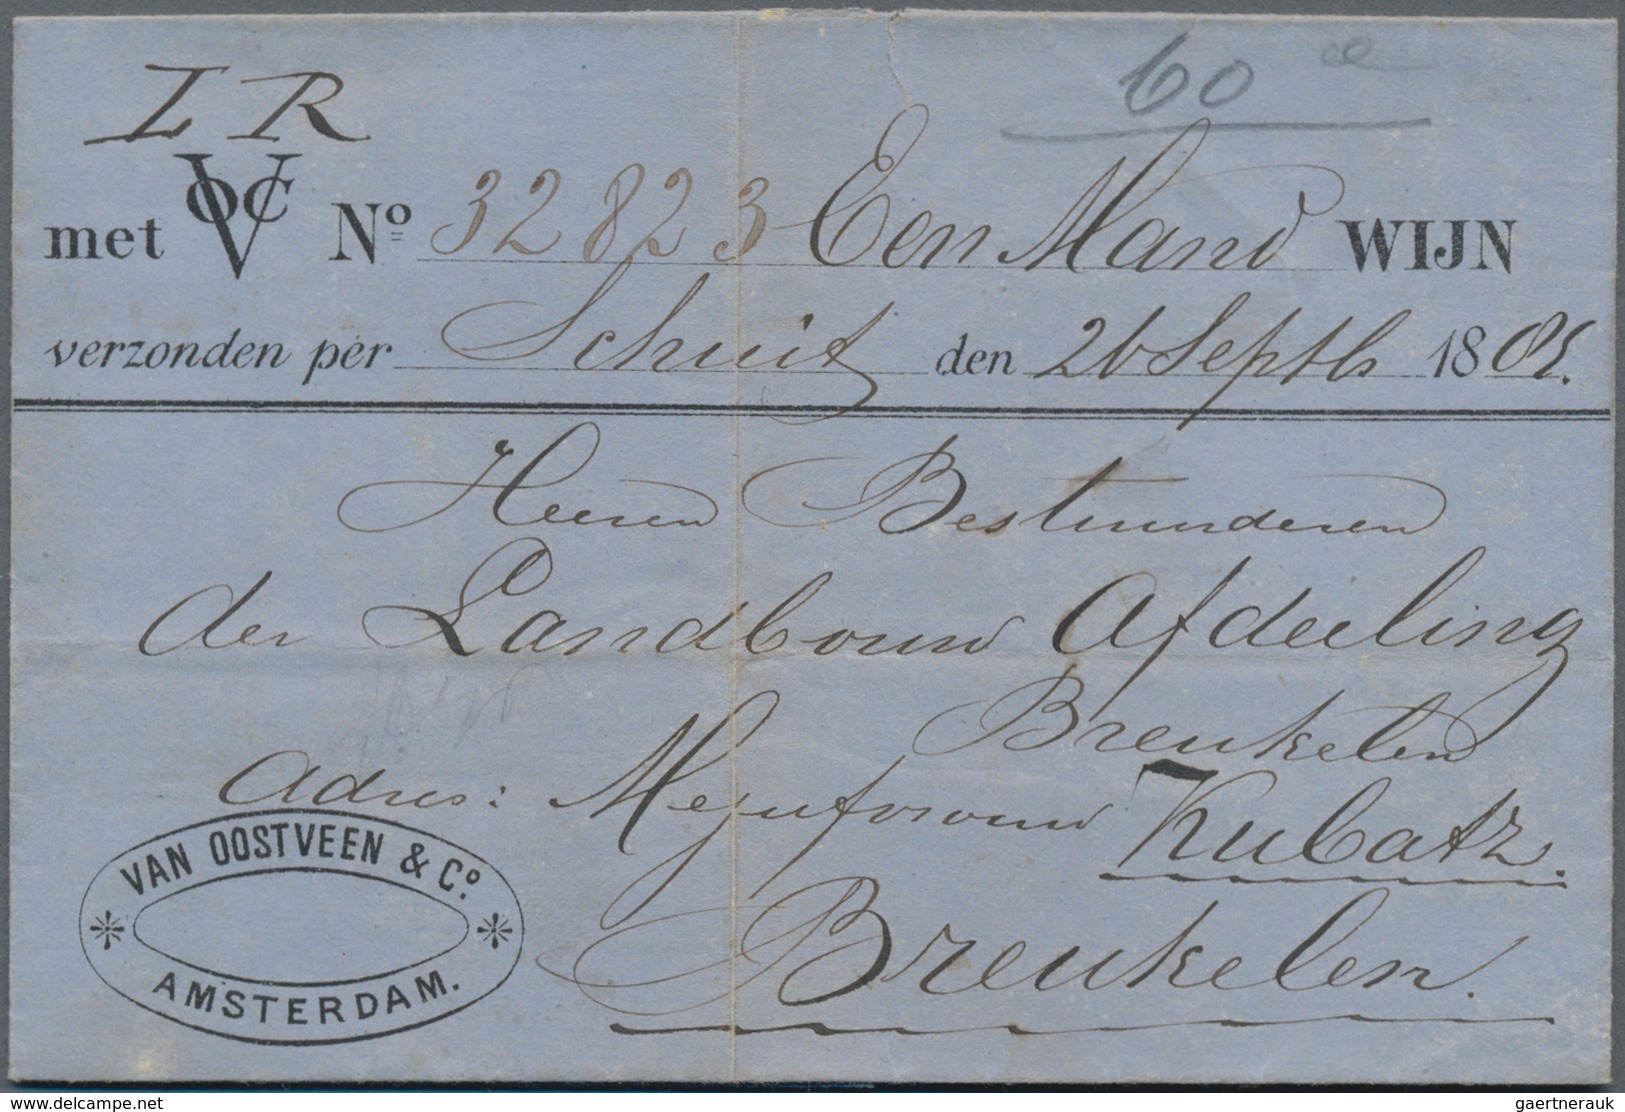 60 ct
L R
met VOC Nº 32823 Een Mand WIJN
verzonden per Schuit den 26 Septb 1881.
Heeren Bestuurderen
der Landbouw Afdeeling
Breukelen
Adres: Mejufvrouw Kubatz.
Breukelen.
VAN OOSTVEEN & Cº.
AMSTERDAM.
www.delcampe.net
gaertnerauk